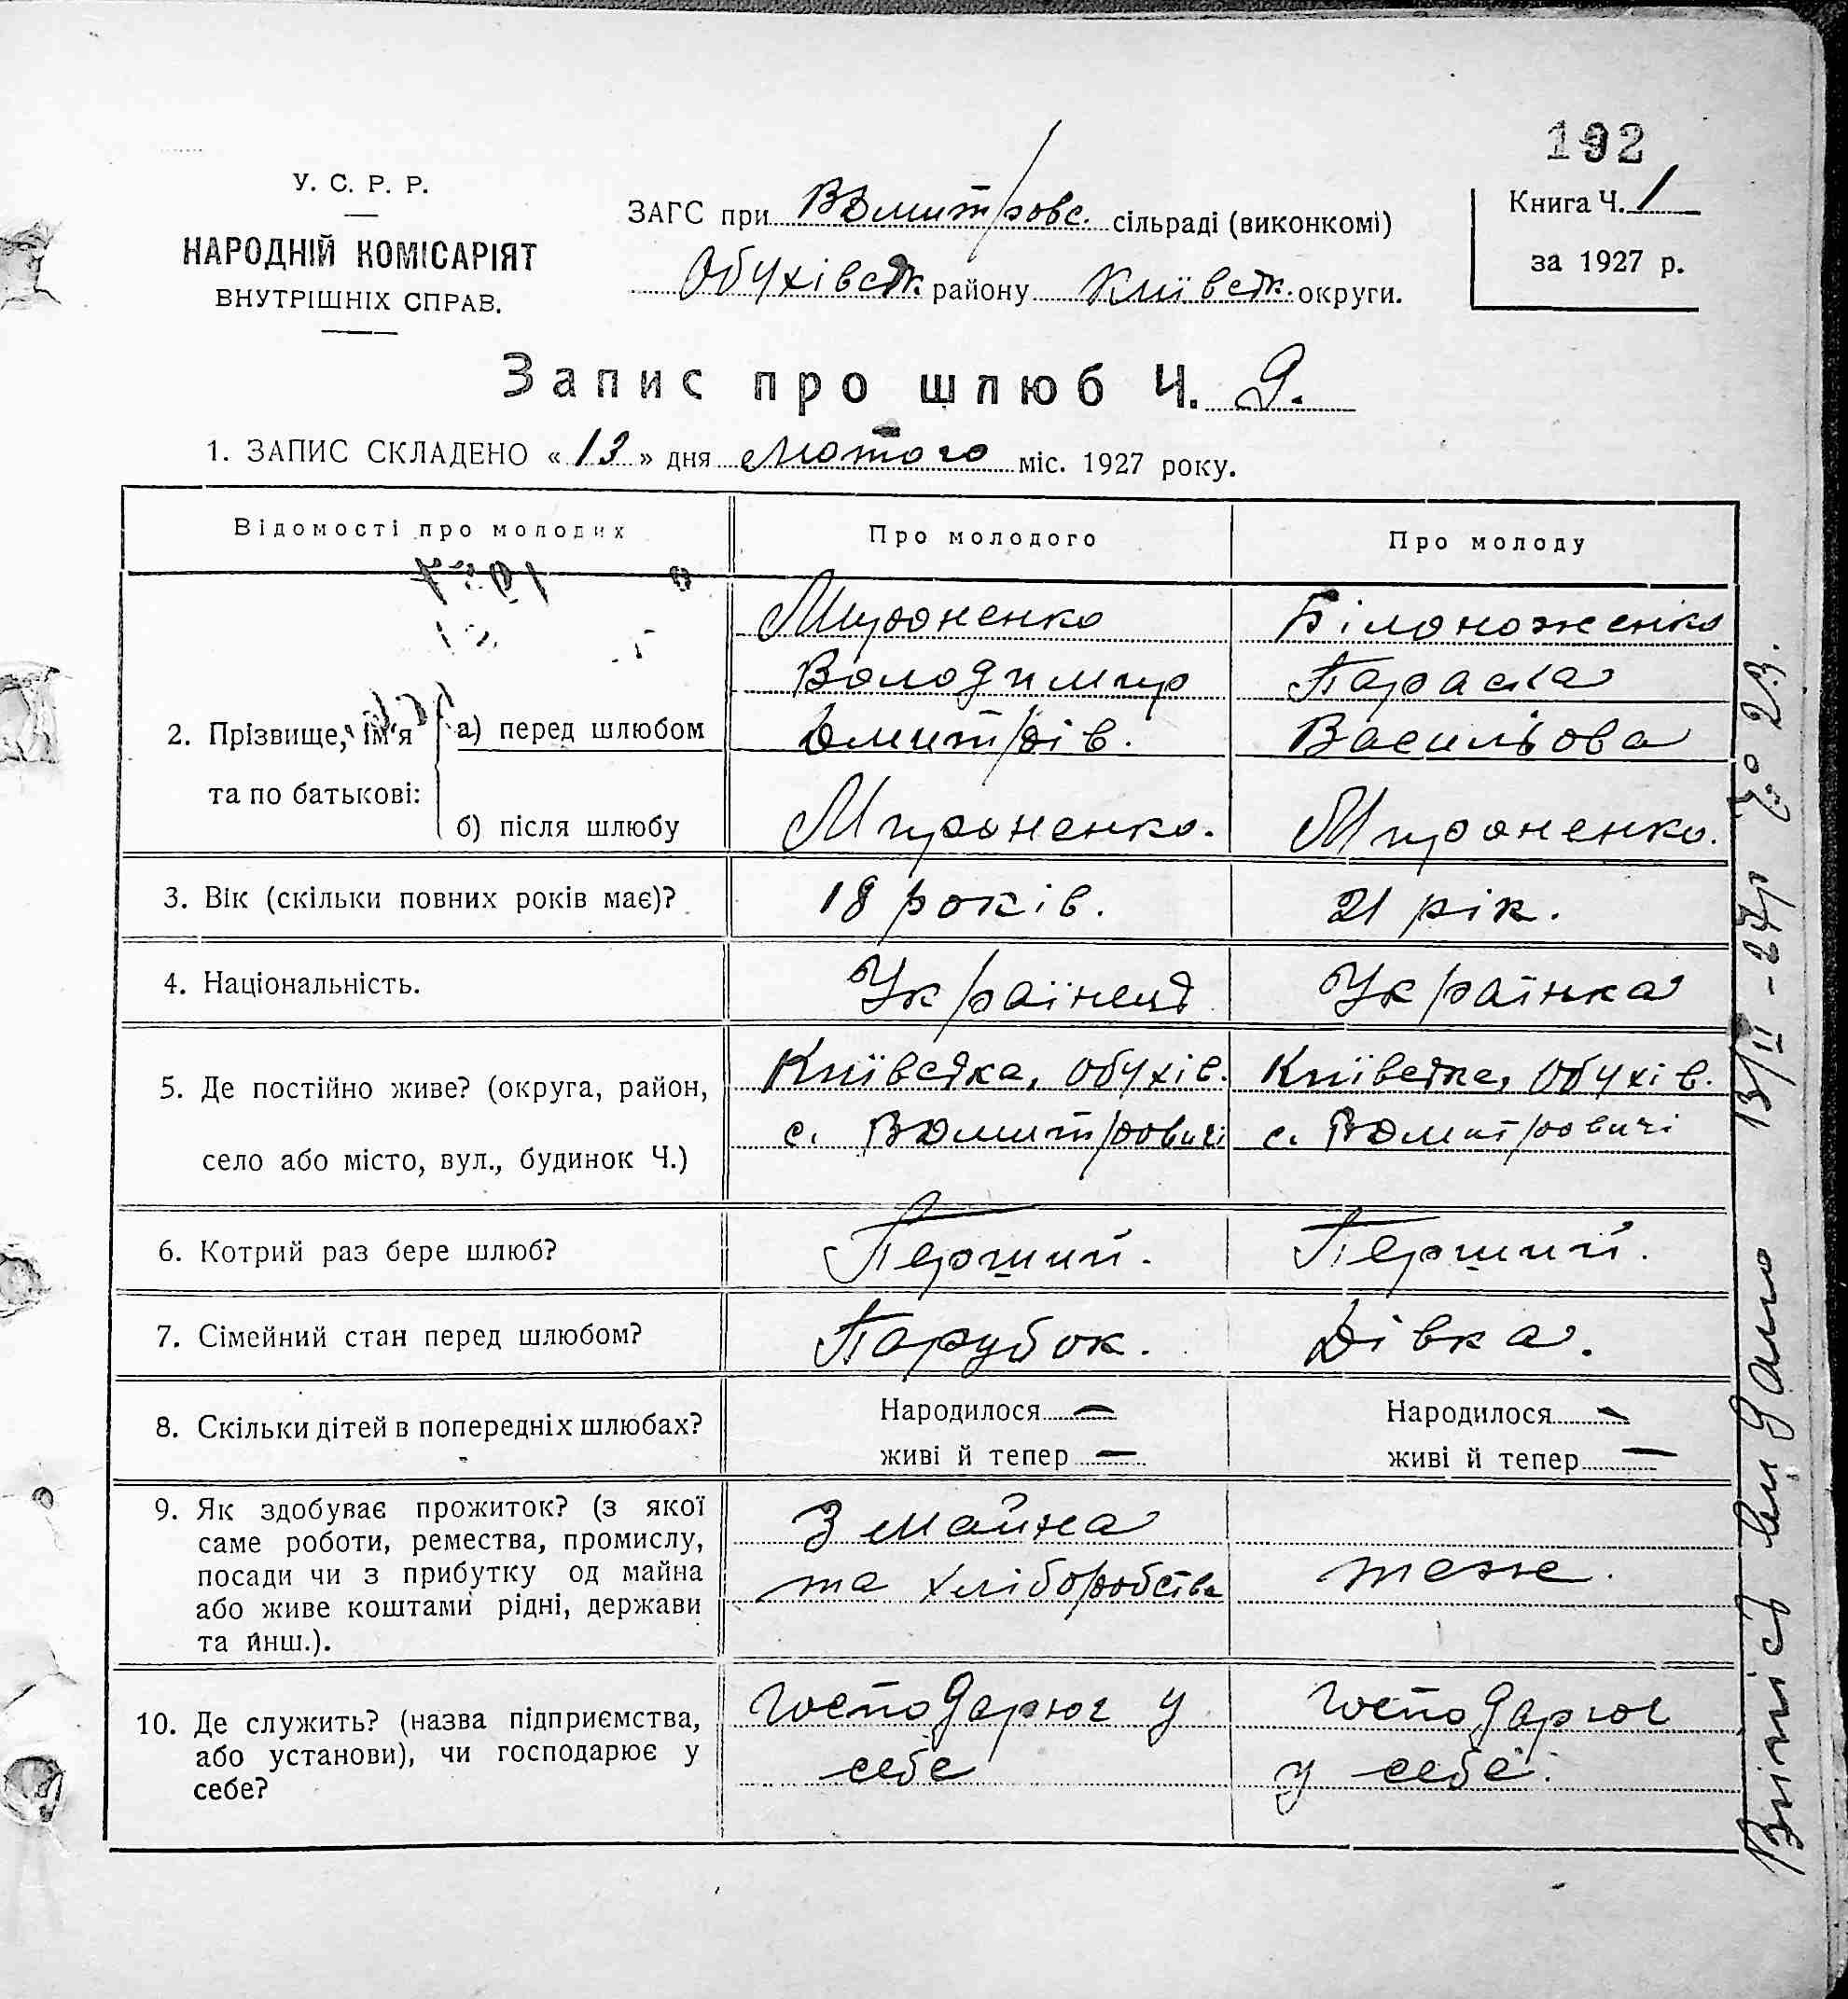 192
У. С. Р. Р.
НАРОДНІЙ КОМІСАРІЯТ
ВНУТРІШНІХ СПРАВ.
ЗАГС при ВДмитровс. сільраді (виконкомі)
Обухівськ. району Київськ. округи.
Книга Ч. 1
за 1927 р.
Запис про шлюб Ч. 9.
1. ЗАПИС СКЛАДЕНО « 13 » дня лютого міс. 1927 року.
Відомості про молодих Про молодого Про молоду
2. Прізвище, ім'я та по батькові:
а) перед шлюбом
Мироненко Білоноженко
Володимир Параска
Дмитрів. Васильова
б) після шлюбу Мироненко. Мироненко.
3. Вік (скільки повних років має)? 18 років. 21 рік.
4. Національність. Українець Українка
5. Де постійно живе? (округа, район, Київська, Обухів. Київська, Обухів.
село або місто, вул., будинок Ч.) с. ВДмитровичі с. ВДмитровичі
6. Котрий раз бере шлюб? Перший. Перший.
7. Сімейний стан перед шлюбом? Парубок. Дівка.
8. Скільки дітей в попередніх шлюбах? Народилося — Народилося —
живі й тепер — живі й тепер —
9. Як здобуває прожиток? (з якої
саме роботи, ремества, промислу,
посади чи з прибутку од майна
або живе коштами рідні, держави
та йнш.).
З майна
та хліборобства теж.
10. Де служить? (назва підприємства,
або установи), чи господарює у
себе?
господарює у господарює
себе у себе.
Випись видано 13/II-27р № 23.